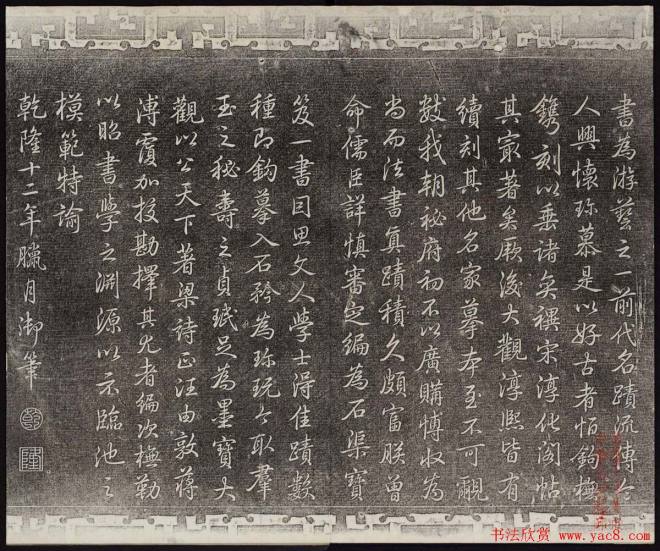 書為游藝之一前代名蹟流傳令
人興懷珍慕是以好古者恒鉤橅
鐫刻以垂諸久禩宋淳化閣帖
其最著矣厥後大觀淳熙皆有
續刻其他名家摹本至不可覼
數我朝秘府初不以廣購博收為
尚而法書真蹟積久頗富朕曾
命儒臣詳慎審定編為石渠寶
笈一書因思文人學士得佳蹟數
種即鉤摹入石矜為珍玩今取羣
玉之秘壽之貞珉足為墨寶大
觀以公天下著梁詩正汪由敦蔣
溥覆加校勘擇其尤者編次橅勒
以昭書學之淵源以示臨池之
模範特諭
乾隆十二年臘月御筆
书法欣赏 www.yac8.com